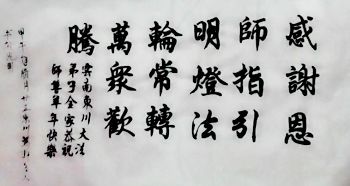 感謝恩
師指引
明燈法
輪常轉
萬衆歡
騰
雲南東川大法
弟子全家恭祝
師尊年年快樂